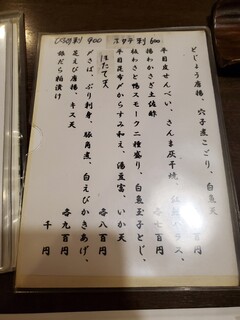 どじょう唐揚、穴子煮こごり、白魚天
百円
平目皮せんべい、さんま灰干焼、
ホタテ 刺 600
揚わかさぎ土佐酢
各七百円
板わさと鴨スモーク二種盛り、白魚玉子とじ、
平目昆布〆からすみ和え、湯豆富、いか天
ほたて天
各八百円
びら 刺 900
〆さば、ぶり刺身、豚角煮、白えびかきあげ、
芝えび唐揚、キス天
各九百円
銀だら粕漬け
千円